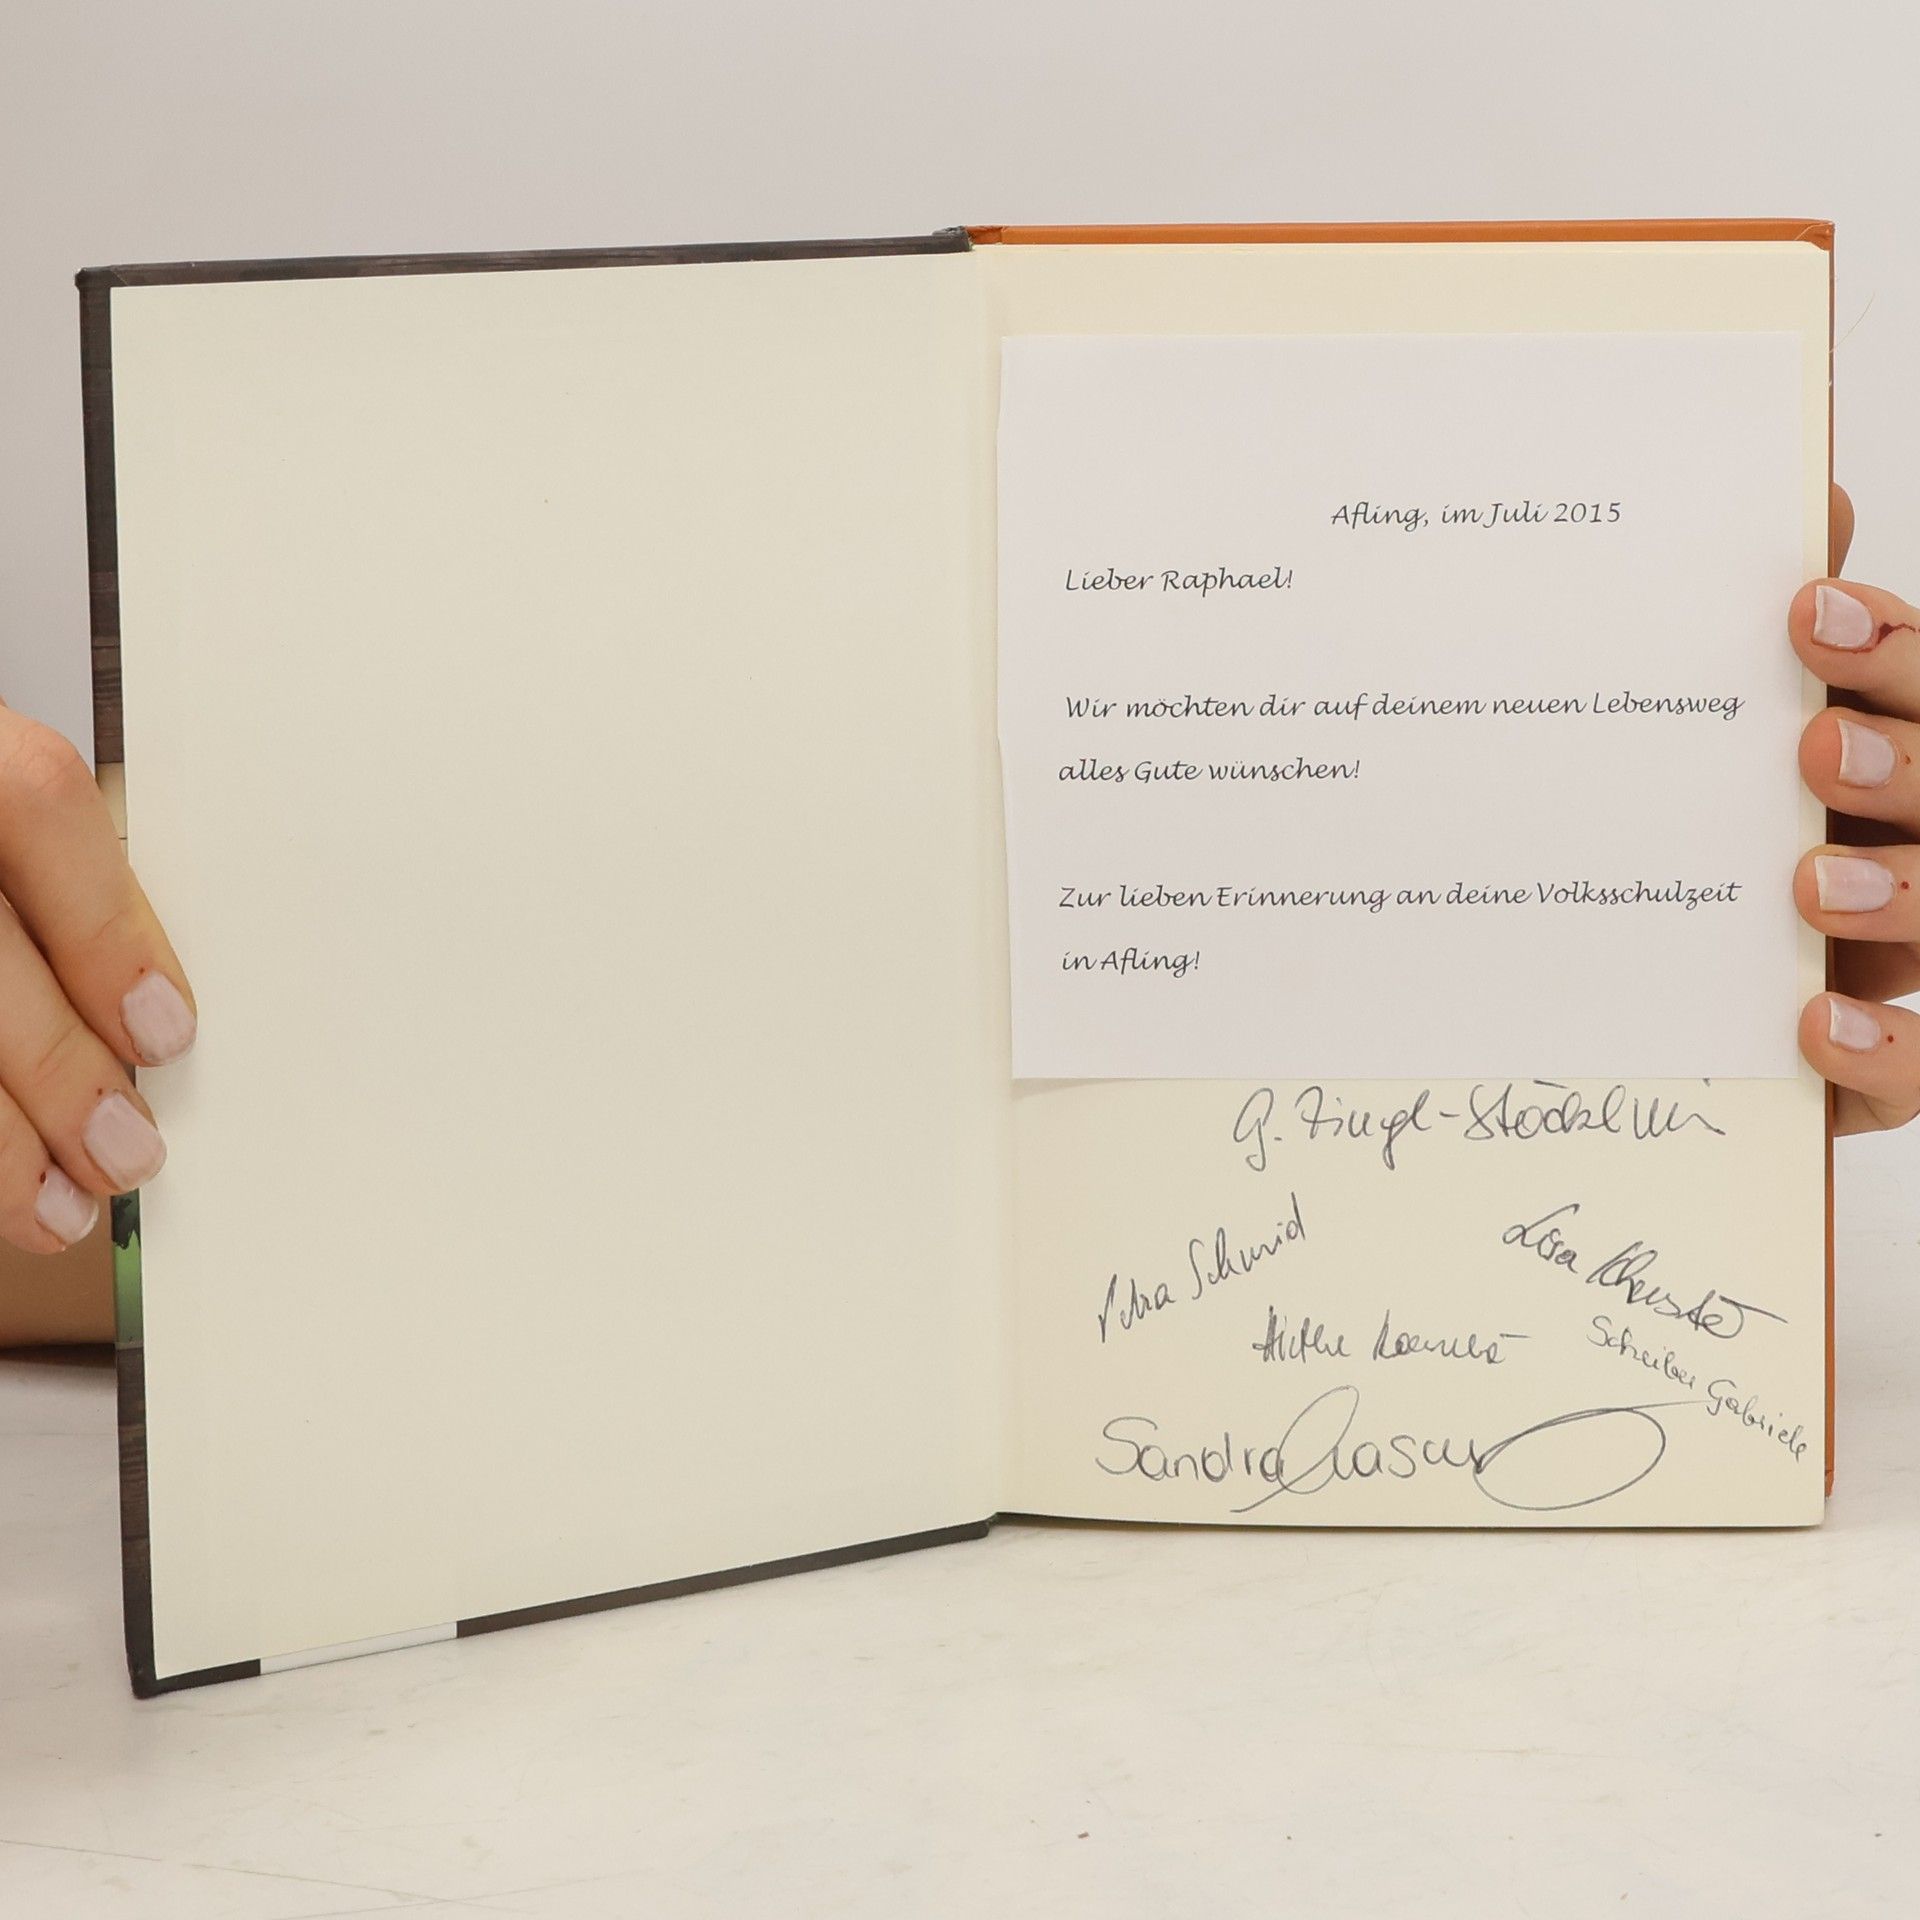 Afling, im Juli 2015
Lieber Raphael!
Wir möchten dir auf deinem neuen Lebensweg
alles Gute wünschen!
Zur lieben Erinnerung an deine Volksschulzeit
in Afling!
G.
Petra Schmid
Lisa
Schreiber Gabriele
Sandra